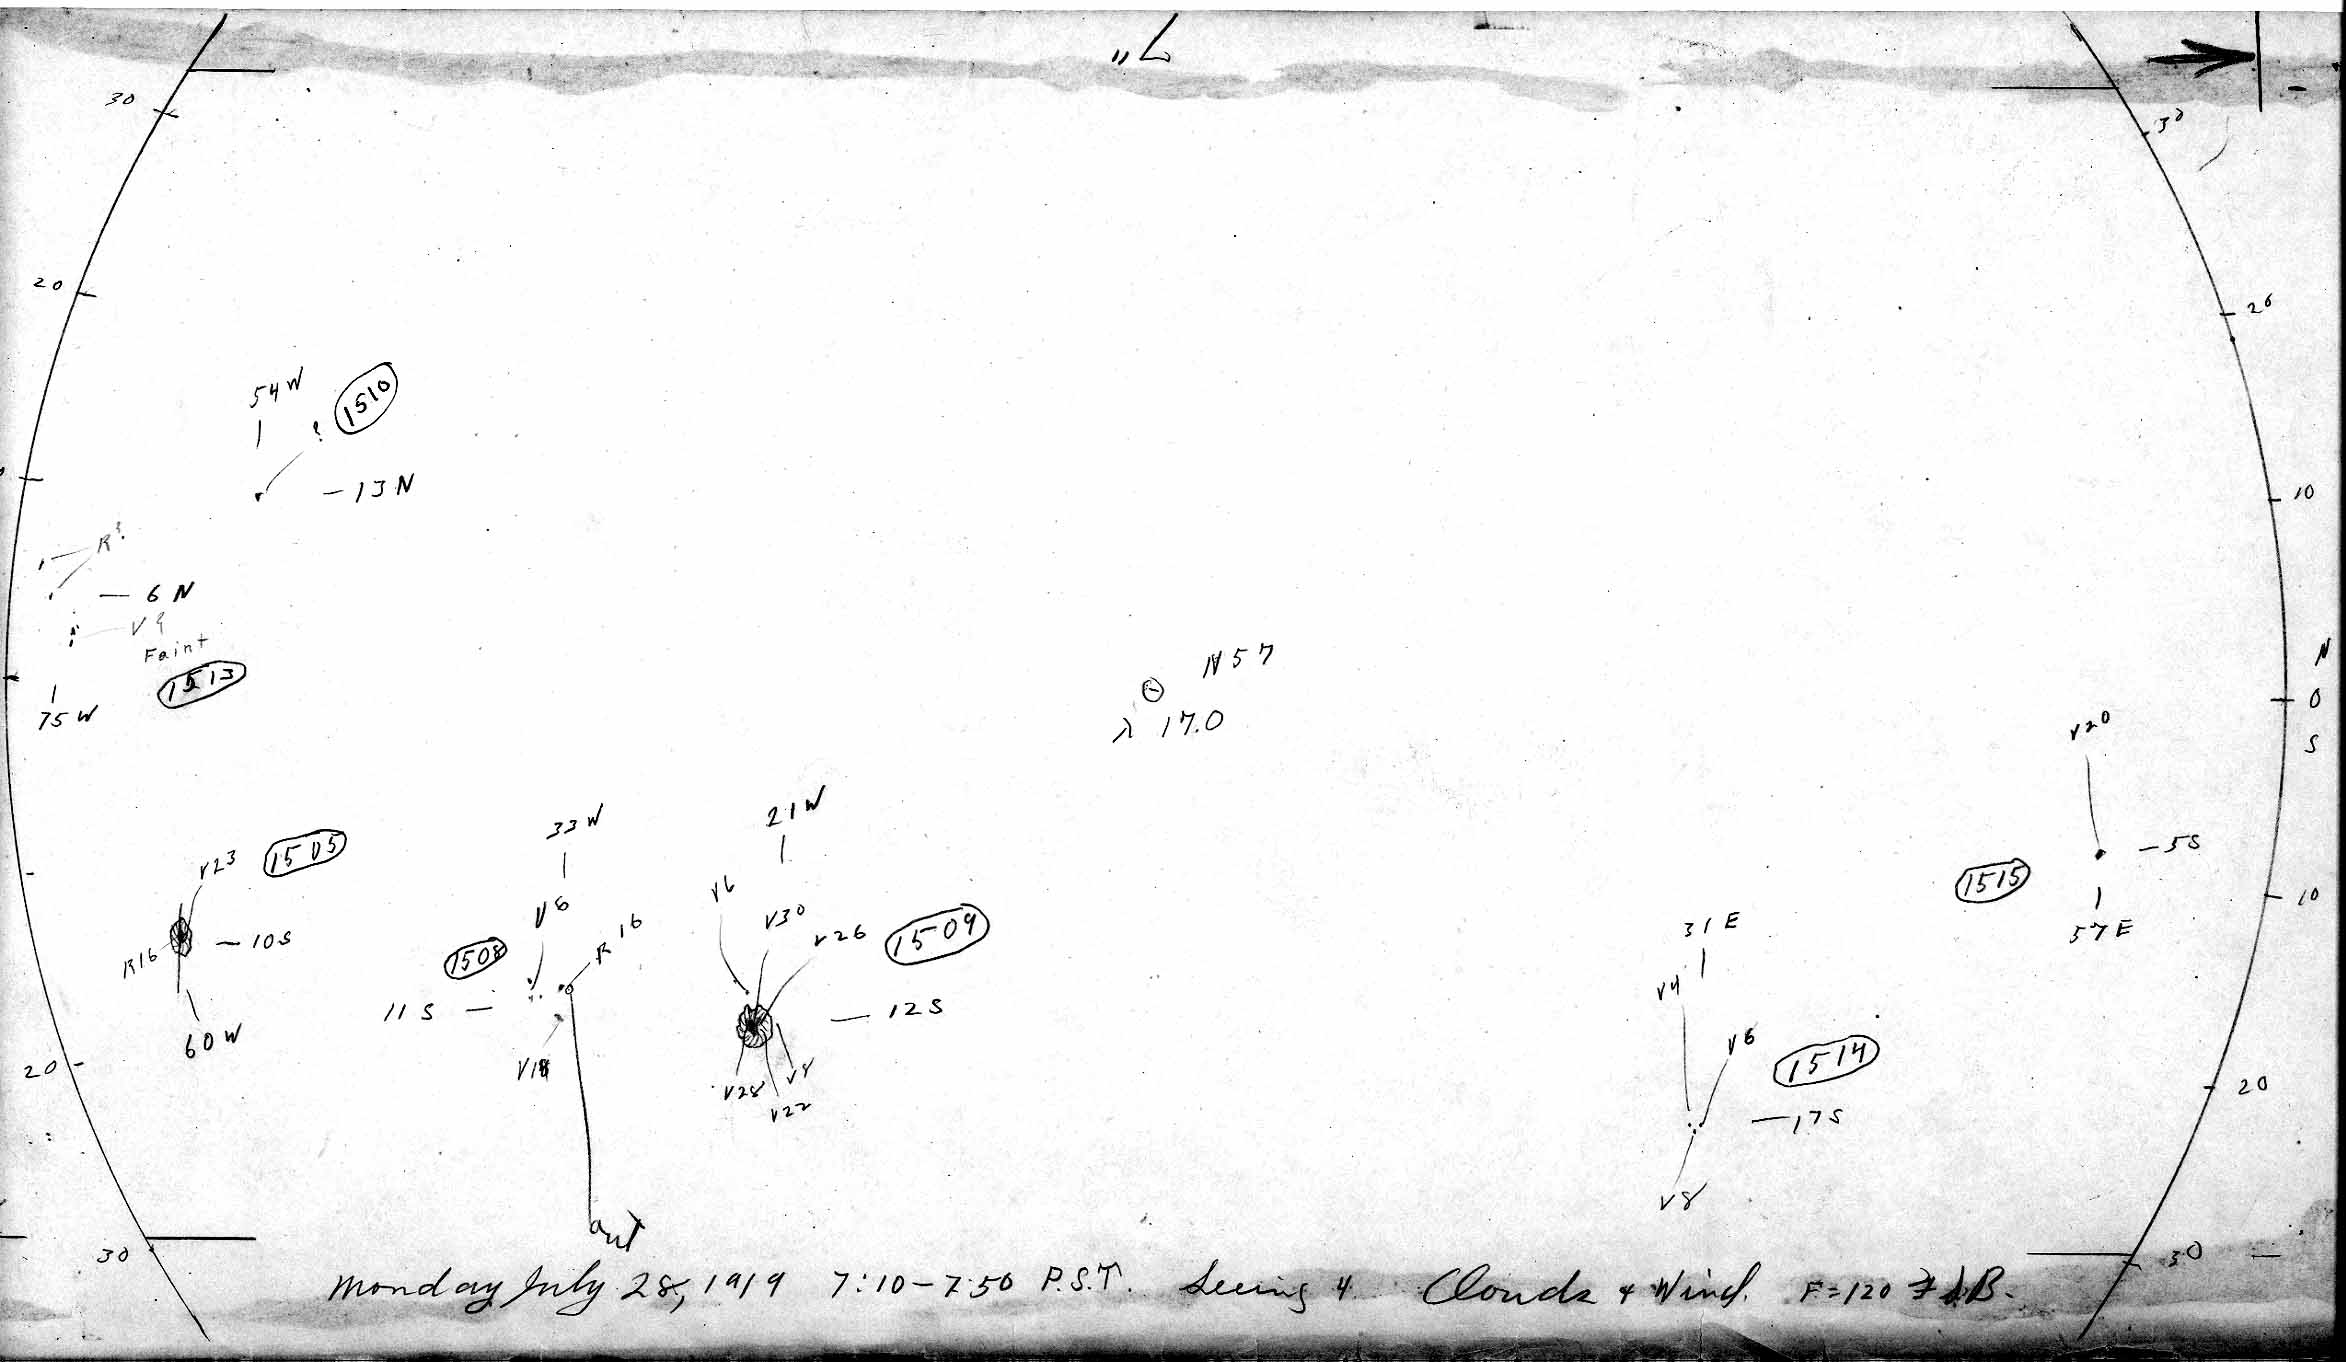 30
30
20
20
54W
1510
?
-13N
10
R?
- 6 N
V?
Faint
1513
75W
N57
λ 17.0
N
0
S
V20
-5S
1515
10
57E
V23
1505
R16
-10S
60W
33W
V6
R16
1508
11S -
21W
V6
V30
V26
1509
- 12S
V28
V22
31E
V4
V6
1514
-17S
V8
20
20
ant
30
30
Monday July 28, 1919 7:10-7:50 P.S.T. Seeing 4 Clouds & Wind. F=120